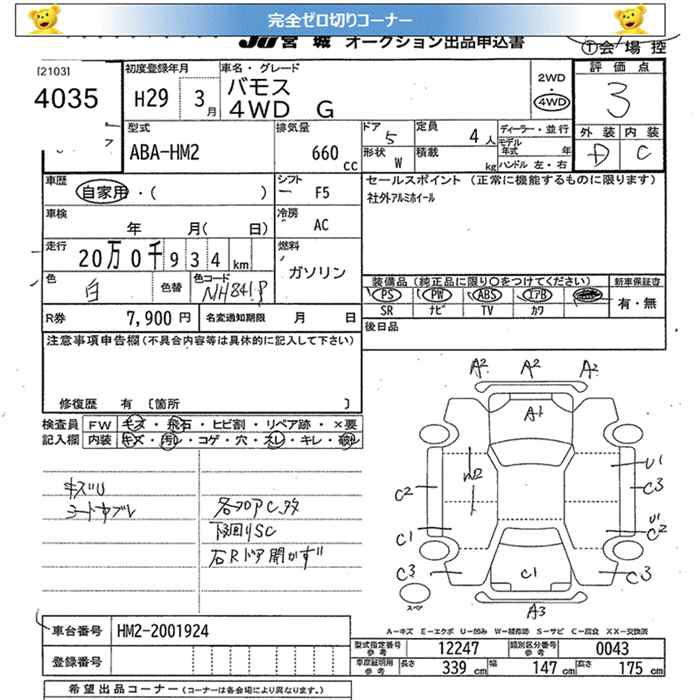 完全ゼロ切りコーナー
JU 宮城 オークション出品申込書
Ⓣ会場控
[2103]
4035
初度登録年月
H29 3月
車名・グレード
バモス
4WD G
2WD
・
4WD
評価点
3
外装 内装
D C
型式
ABA-HM2
排気量
660 cc
ドア 5
形状 W
定員 4人
積載 kg
ディーラー・並行
モデル年式 年
ハンドル 左・右
車歴
自家用・( )
シフト
F5
車検
年 月( 日)
冷房
AC
走行
20万0千934km
燃料
ガソリン
色
白
色替
色コード
NH841P
R券 7,900円
名変通知期限 月 日
セールスポイント (正常に機能するものに限ります)
社外アルミホイール
装備品(純正品に限り○をつけてください)
PS PW ABS エアB
SR ナビ TV カワ
新車保証書
有・無
後日品
注意事項申告欄(不具合内容等は具体的に記入して下さい)
修復歴 有 〔箇所 〕
検査員記入欄
FW キズ・飛石・ヒビ割・リペア跡・×要
内装 キズ・汚れ・コゲ・穴・スレ・キレ・破レ
キズU
コートヤブレ
各フロアC,タタ
下回りSC
右Rドア開かず
A2 A2 A2
A1
W2
U1
C2
C3
U1
C2
C1
C3
C1
C3
A3
スペア
A−キズ E−エクボ U−凹み W−補修跡 S−サビ C−腐食 XX−交換済
車台番号 HM2-2001924
登録番号
型式指定番号 参考 12247
類別区分番号 参考 0043
車庫証明用 参考 長さ 339cm 幅 147cm 高さ 175cm
希望出品コーナー(コーナーは各会場により異なります。)